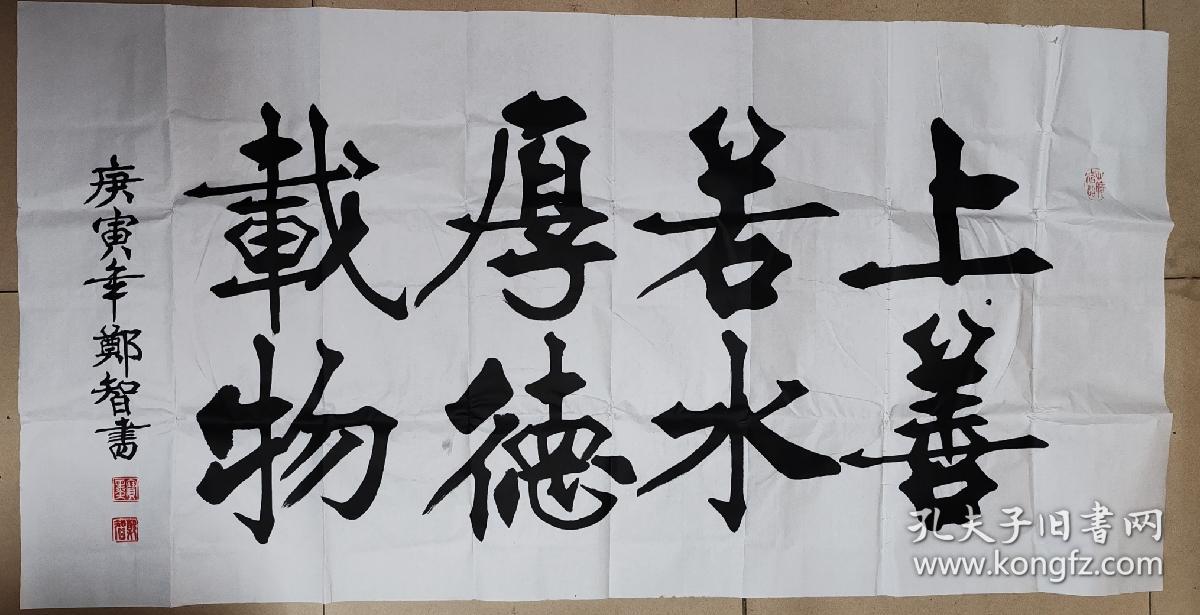 上善
若水
厚德
載物
庚寅年鄭智書
孔夫子旧書网
www.kongfz.com